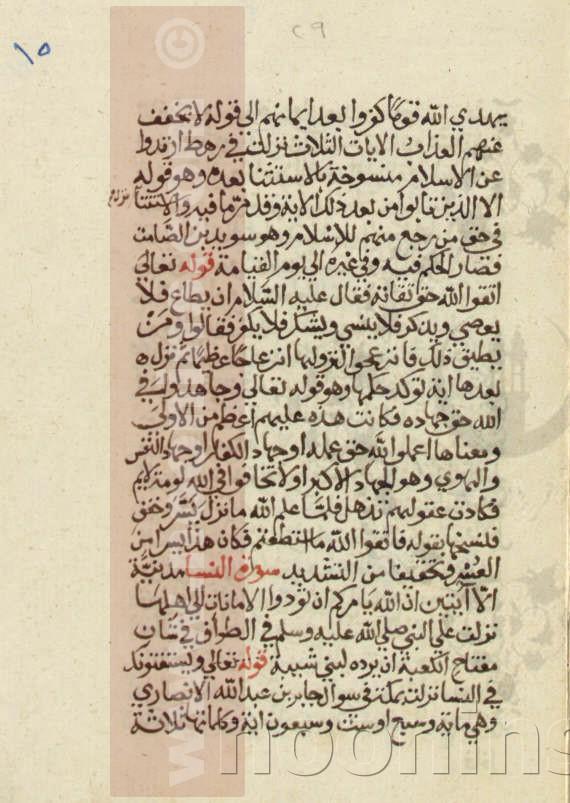 ٢٩
١٥
يهدي الله قوما كفروا بعد ايمانهم الى قوله لا يخفف
عنهم العذاب الايات الثلاث نزلت في رهط ارتدوا
عن الاسلام منسوخة بالاستثنا بعده وهو قوله
الا الذين تابوا من بعد ذلك الاية وقد مر ما فيه والاستثنا
في حق من رجع منهم للاسلام وهو سويد بن الصامت
فصار الحكم فيه وفي غيره الى يوم القيامة قوله تعالى
اتقوا الله حق تقاته فقال عليه السلام ان يطاع فلا
يعصي ويذكر فلا ينسي ويشكر فلا يكفر فقالوا ومن
يطيق ذلك فانزعجوا لنزولها انزعاجا عظيما ثم نزل
بعدها اية توكد حكمها وهو قوله تعالى وجاهدوا في
الله حق جهاده فكانت هذه عليهم اعظم من الاولى
ومعناها اعملوا لله حق عمله او جهاد الكفار او جهاد النفس
والهوي وهو الجهاد الاكبر او لا تخافوا في الله لومة لايم
فكادت عقولهم تذهل فلما علم الله ما نزل يسر وخفف
فنسخها بقوله فاتقوا الله ما استطعتم فكان هذا يسرا من
العسر وتخفيفا من التشديد سورة النسا مدنية
الا آيتين ان الله يامركم ان تودوا الامانات الى اهلها
نزلت على النبي صلى الله عليه وسلم في الطواف في شان
مفتاح الكعبة ان يرده لبني شيبة قوله تعالى ويستفتونك
في النسا نزلت بمكة في سوال جابر بن عبد الله الانصاري
وهي ماية وسبع او ست وسبعون اية وكلماتها ثلاثة
noorlins